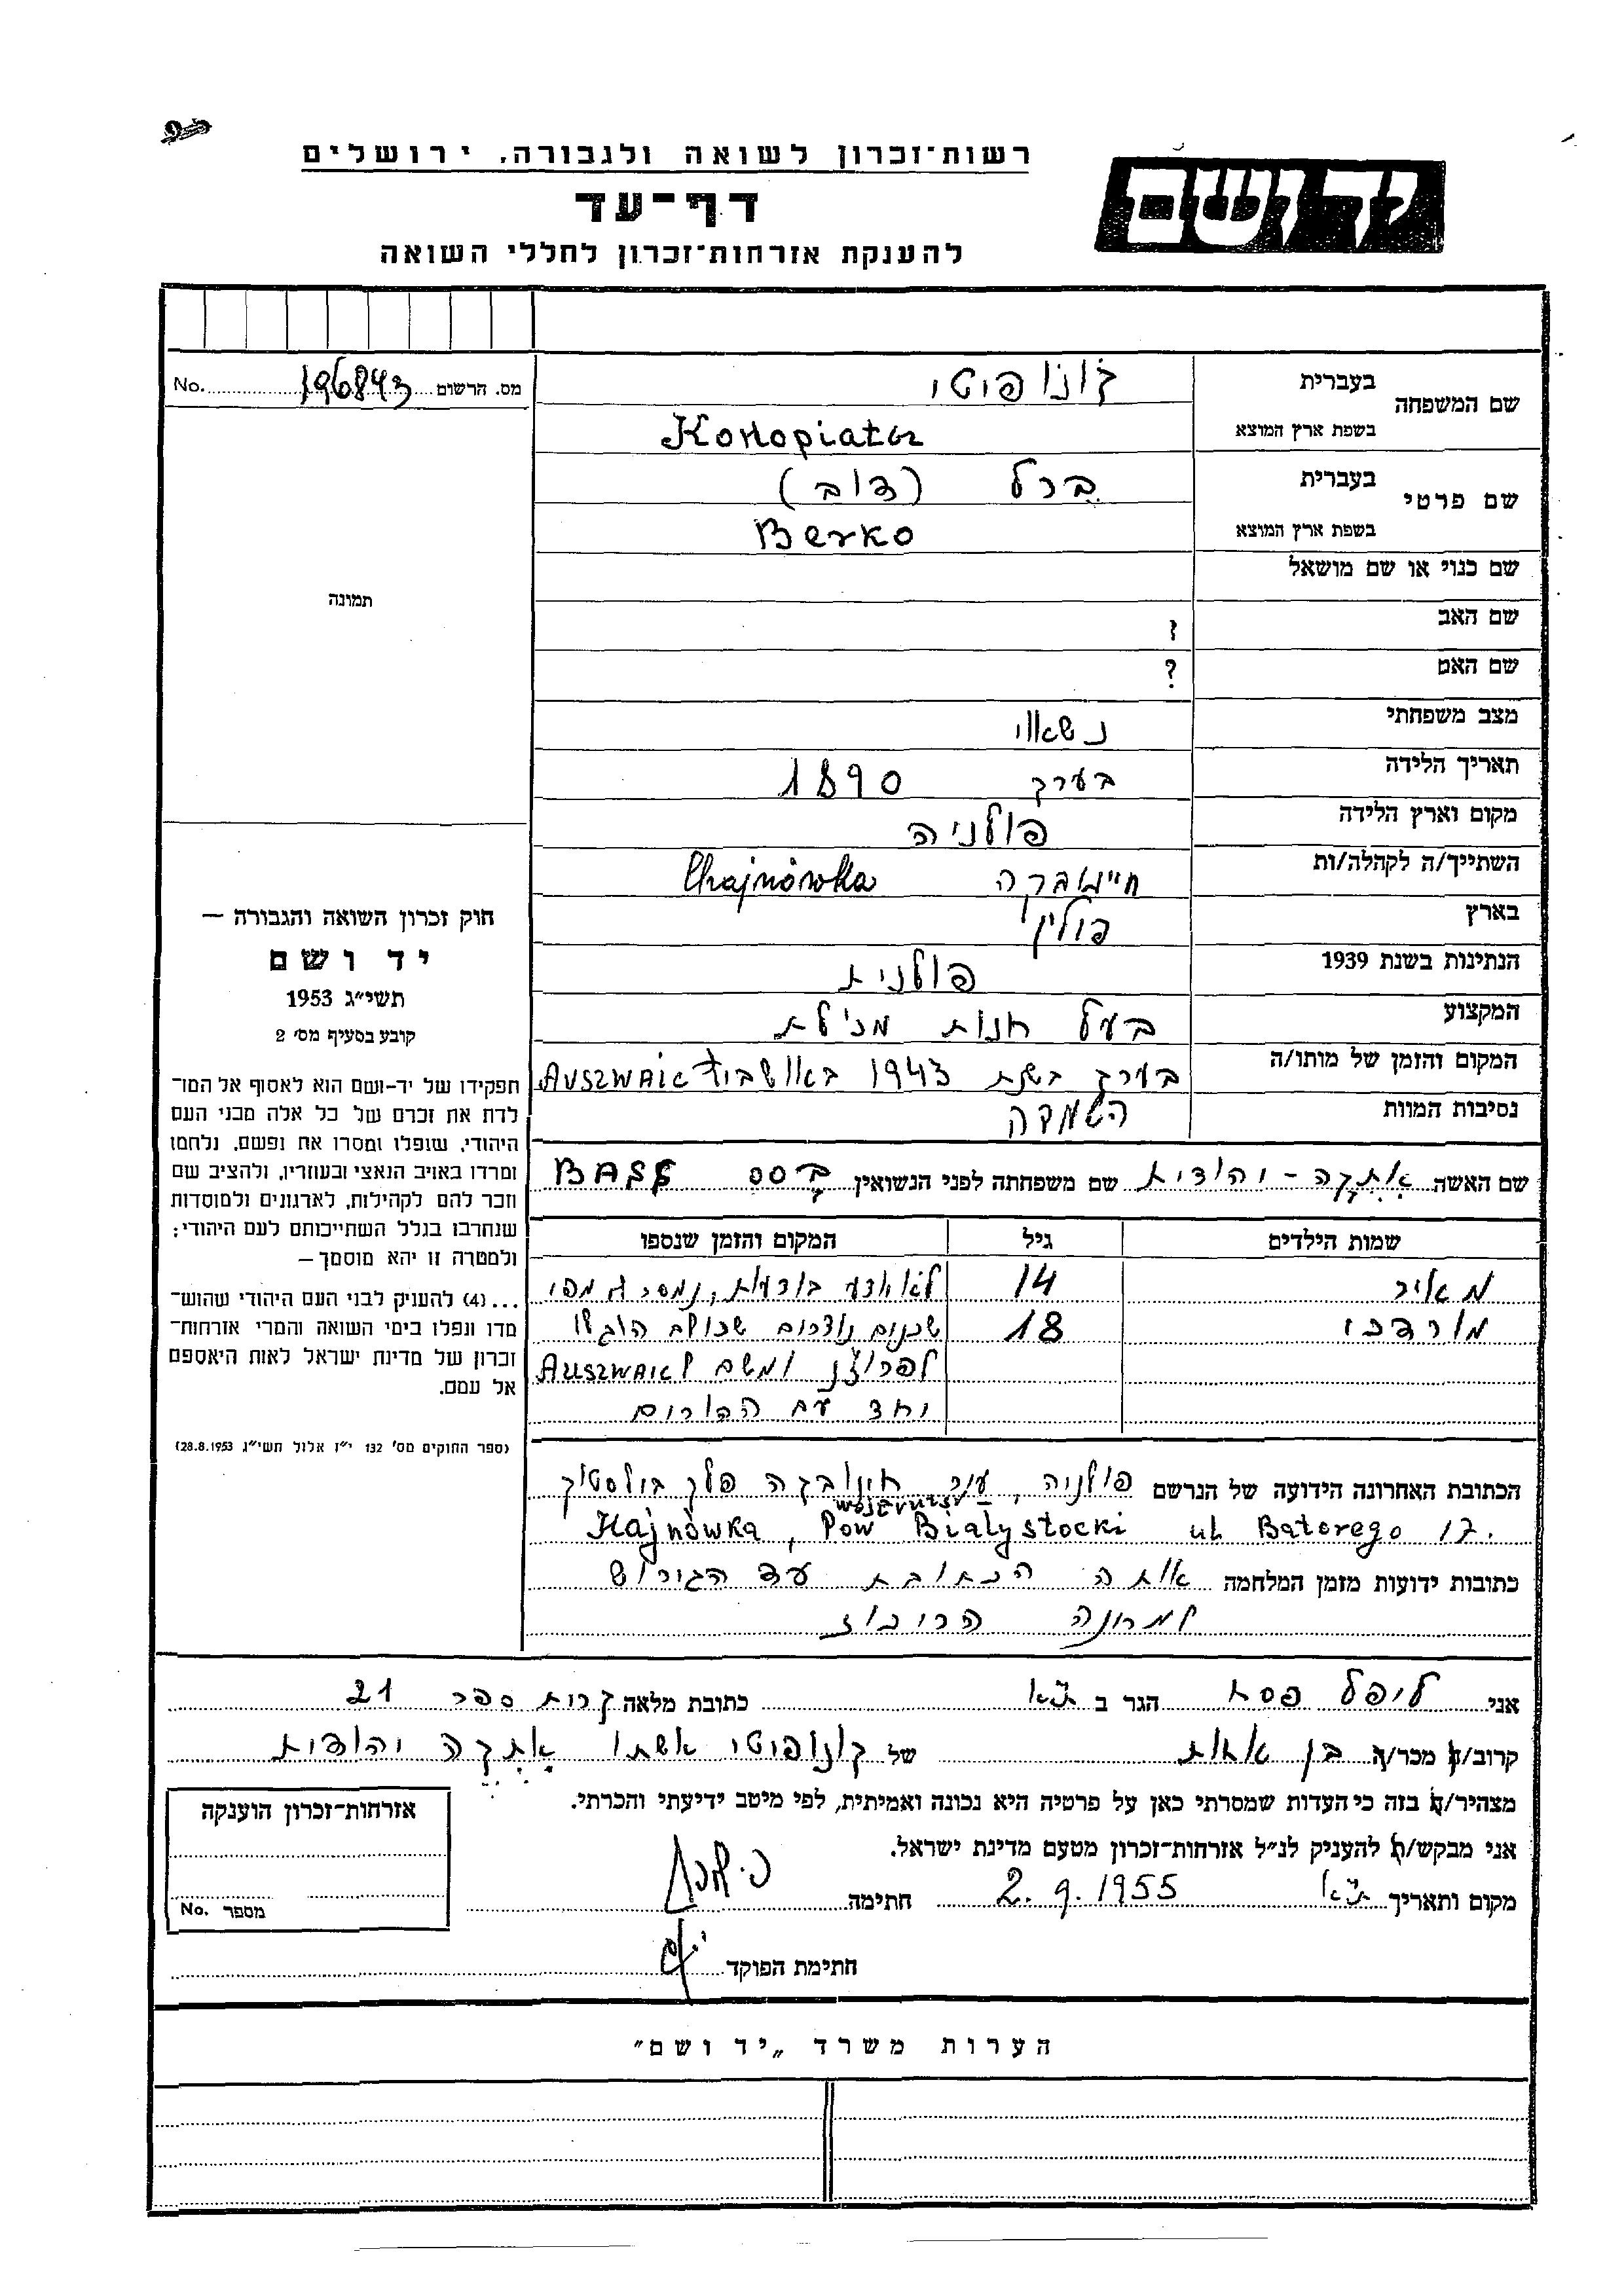 רשות־זכרון לשואה ולגבורה, ירושלים
יד ושם
דף־עד
להענקת אזרחות־זכרון לחללי השואה
מס. הרשום 196843 No.
שם המשפחה
בעברית קונופיטי
בשפת ארץ המוצא
שם פרטי
בעברית ברל (דוב)
בשפת ארץ המוצא Berko
שם כנוי או שם מושאל
שם האב ?
שם האם ?
מצב משפחתי נשאוי
תאריך הלידה בערך 1890
מקום וארץ הלידה פולניה
השתייך/ה לקהלה/ות Chajnówka
בארץ פולין
הנתינות בשנת 1939 פולנית
המקצוע בעל חנות מכולת
המקום והזמן של מותו/ה בערך בשנת 1943 באושביץ AUSZWAIC
נסיבות המוות השמדה
תמונה
חוק זכרון השואה והגבורה —
יד ושם
תשי״ג 1953
קובע בסעיף מס׳ 2
תפקידו של יד-ושם הוא לאסוף אל המו־
לדת את זכרם של כל אלה מבני העם
היהודי, שנפלו ומסרו את נפשם, נלחמו
ומרדו באויב הנאצי ובעוזריו, ולהציב שם
וזכר להם לקהילות, לארגונים ולמוסדות
שנחרבו בגלל השתייכותם לעם היהודי;
ולמטרה זו יהא מוסמך —
...(4) להעניק לבני העם היהודי שהוש־
מדו ונפלו בימי השואה והמרי אזרחות־
זכרון של מדינת ישראל לאות היאספם
אל עמם.
(ספר החוקים מס׳ 132 י״ז אלול תשי״ג 28.8.1953)
שם האשה אתקה - יהודית שם משפחתה לפני הנשואין בסס BASS
שמות הילדים גיל המקום והזמן שנספו
מאיר 14 לא יודע בודאות, נמסר מפי
מורדכי 18 שכנים נוצרים שכולם הוגלו
לפרוז'נן ומשם לAUSZWAIC
יחד עם ההורים
הכתובת האחרונה הידועה של הנרשם פולניה, עיר חינובקה פלך ביליסטוק
Hajnówka, Pow Białystocki ul. Batorego 17.
כתובות ידועות מזמן המלחמה אותה הכתובת עד הגירוש
אני ליפל פסח הגר ב ת״א כתובת מלאה קרית ספר 21
קרוב/ה מכר/ה בן אחות של קונופיטי אשתו אתקה יהודית
מצהיר/ה בזה כי העדות שמסרתי כאן על פרטיה היא נכונה ואמיתית, לפי מיטב ידיעתי והכרתי.
אני מבקש/ת להעניק לנ״ל אזרחות־זכרון מטעם מדינת ישראל.
מקום ותאריך ת״א 2.9.1955 חתימה
חתימת הפוקד
אזרחות־זכרון הוענקה
מספר No.
הערות משרד „יד ושם״